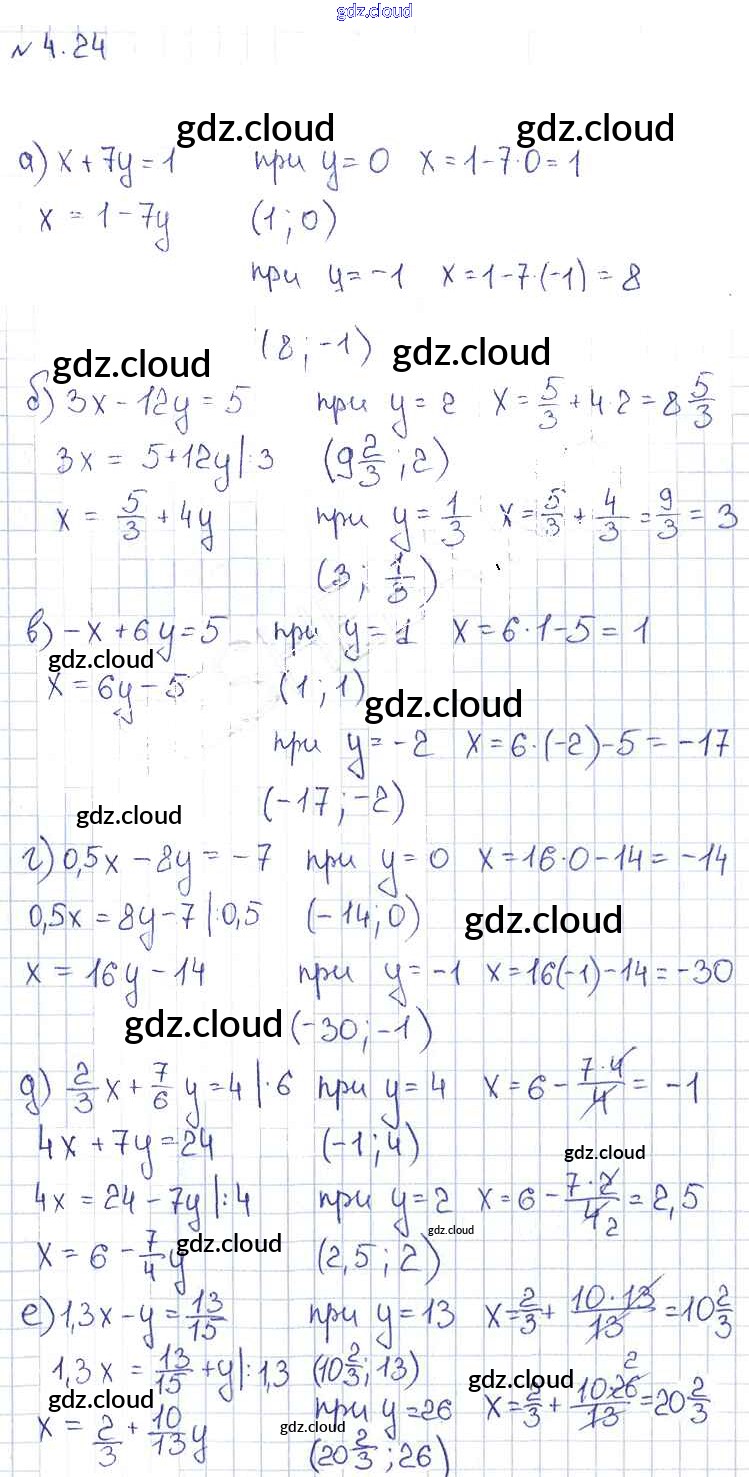 gdz.cloud
N 4.24
gdz.cloud gdz.cloud
а) x + 7y = 1 при y = 0 x = 1 - 7·0 = 1
x = 1 - 7y (1; 0)
при y = -1 x = 1 - 7·(-1) = 8
(8; -1)
gdz.cloud gdz.cloud
б) 3x - 12y = 5 при y = 2 x = 5/3 + 4·2 = 8 5/3
3x = 5 + 12y |:3 (9 2/3; 2)
x = 5/3 + 4y при y = 1/3 x = 5/3 + 4/3 = 9/3 = 3
(3; 1/3)
в) -x + 6y = 5 при y = 1 x = 6·1 - 5 = 1
gdz.cloud
x = 6y - 5 (1; 1)
gdz.cloud
при y = -2 x = 6·(-2) - 5 = -17
(-17; -2)
gdz.cloud
г) 0,5x - 8y = -7 при y = 0 x = 16·0 - 14 = -14
0,5x = 8y - 7 |:0,5 (-14; 0) gdz.cloud
x = 16y - 14 при y = -1 x = 16(-1) - 14 = -30
gdz.cloud (-30; -1)
д) 2/3 x + 7/6 y = 4 |·6 при y = 4 x = 6 - 7·4/4 = -1
4x + 7y = 24 (-1; 4)
gdz.cloud
4x = 24 - 7y |:4 при y = 2 x = 6 - 7·2/4 2 = 2,5
gdz.cloud
x = 6 - 7/4 y gdz.cloud (2,5; 2)
е) 1,3x - y = 13/15 при y = 13 x = 2/3 + 10·13/13 = 10 2/3
1,3x = 13/15 + y |:1,3 (10 2/3; 13)
gdz.cloud gdz.cloud
x = 2/3 + 10/13 y при y = 26 x = 2/3 + 10·26 2/13 = 20 2/3
gdz.cloud
(20 2/3; 26)